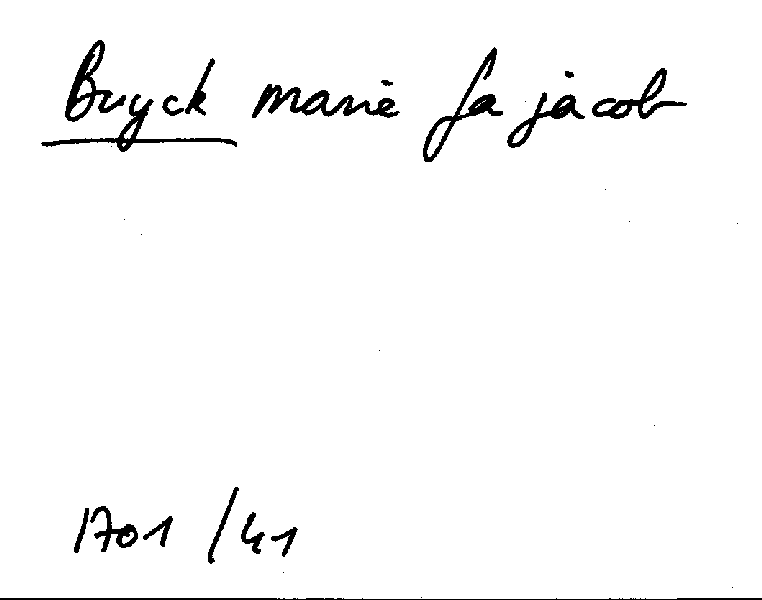 Buyck marie fa jacob
1701 /41